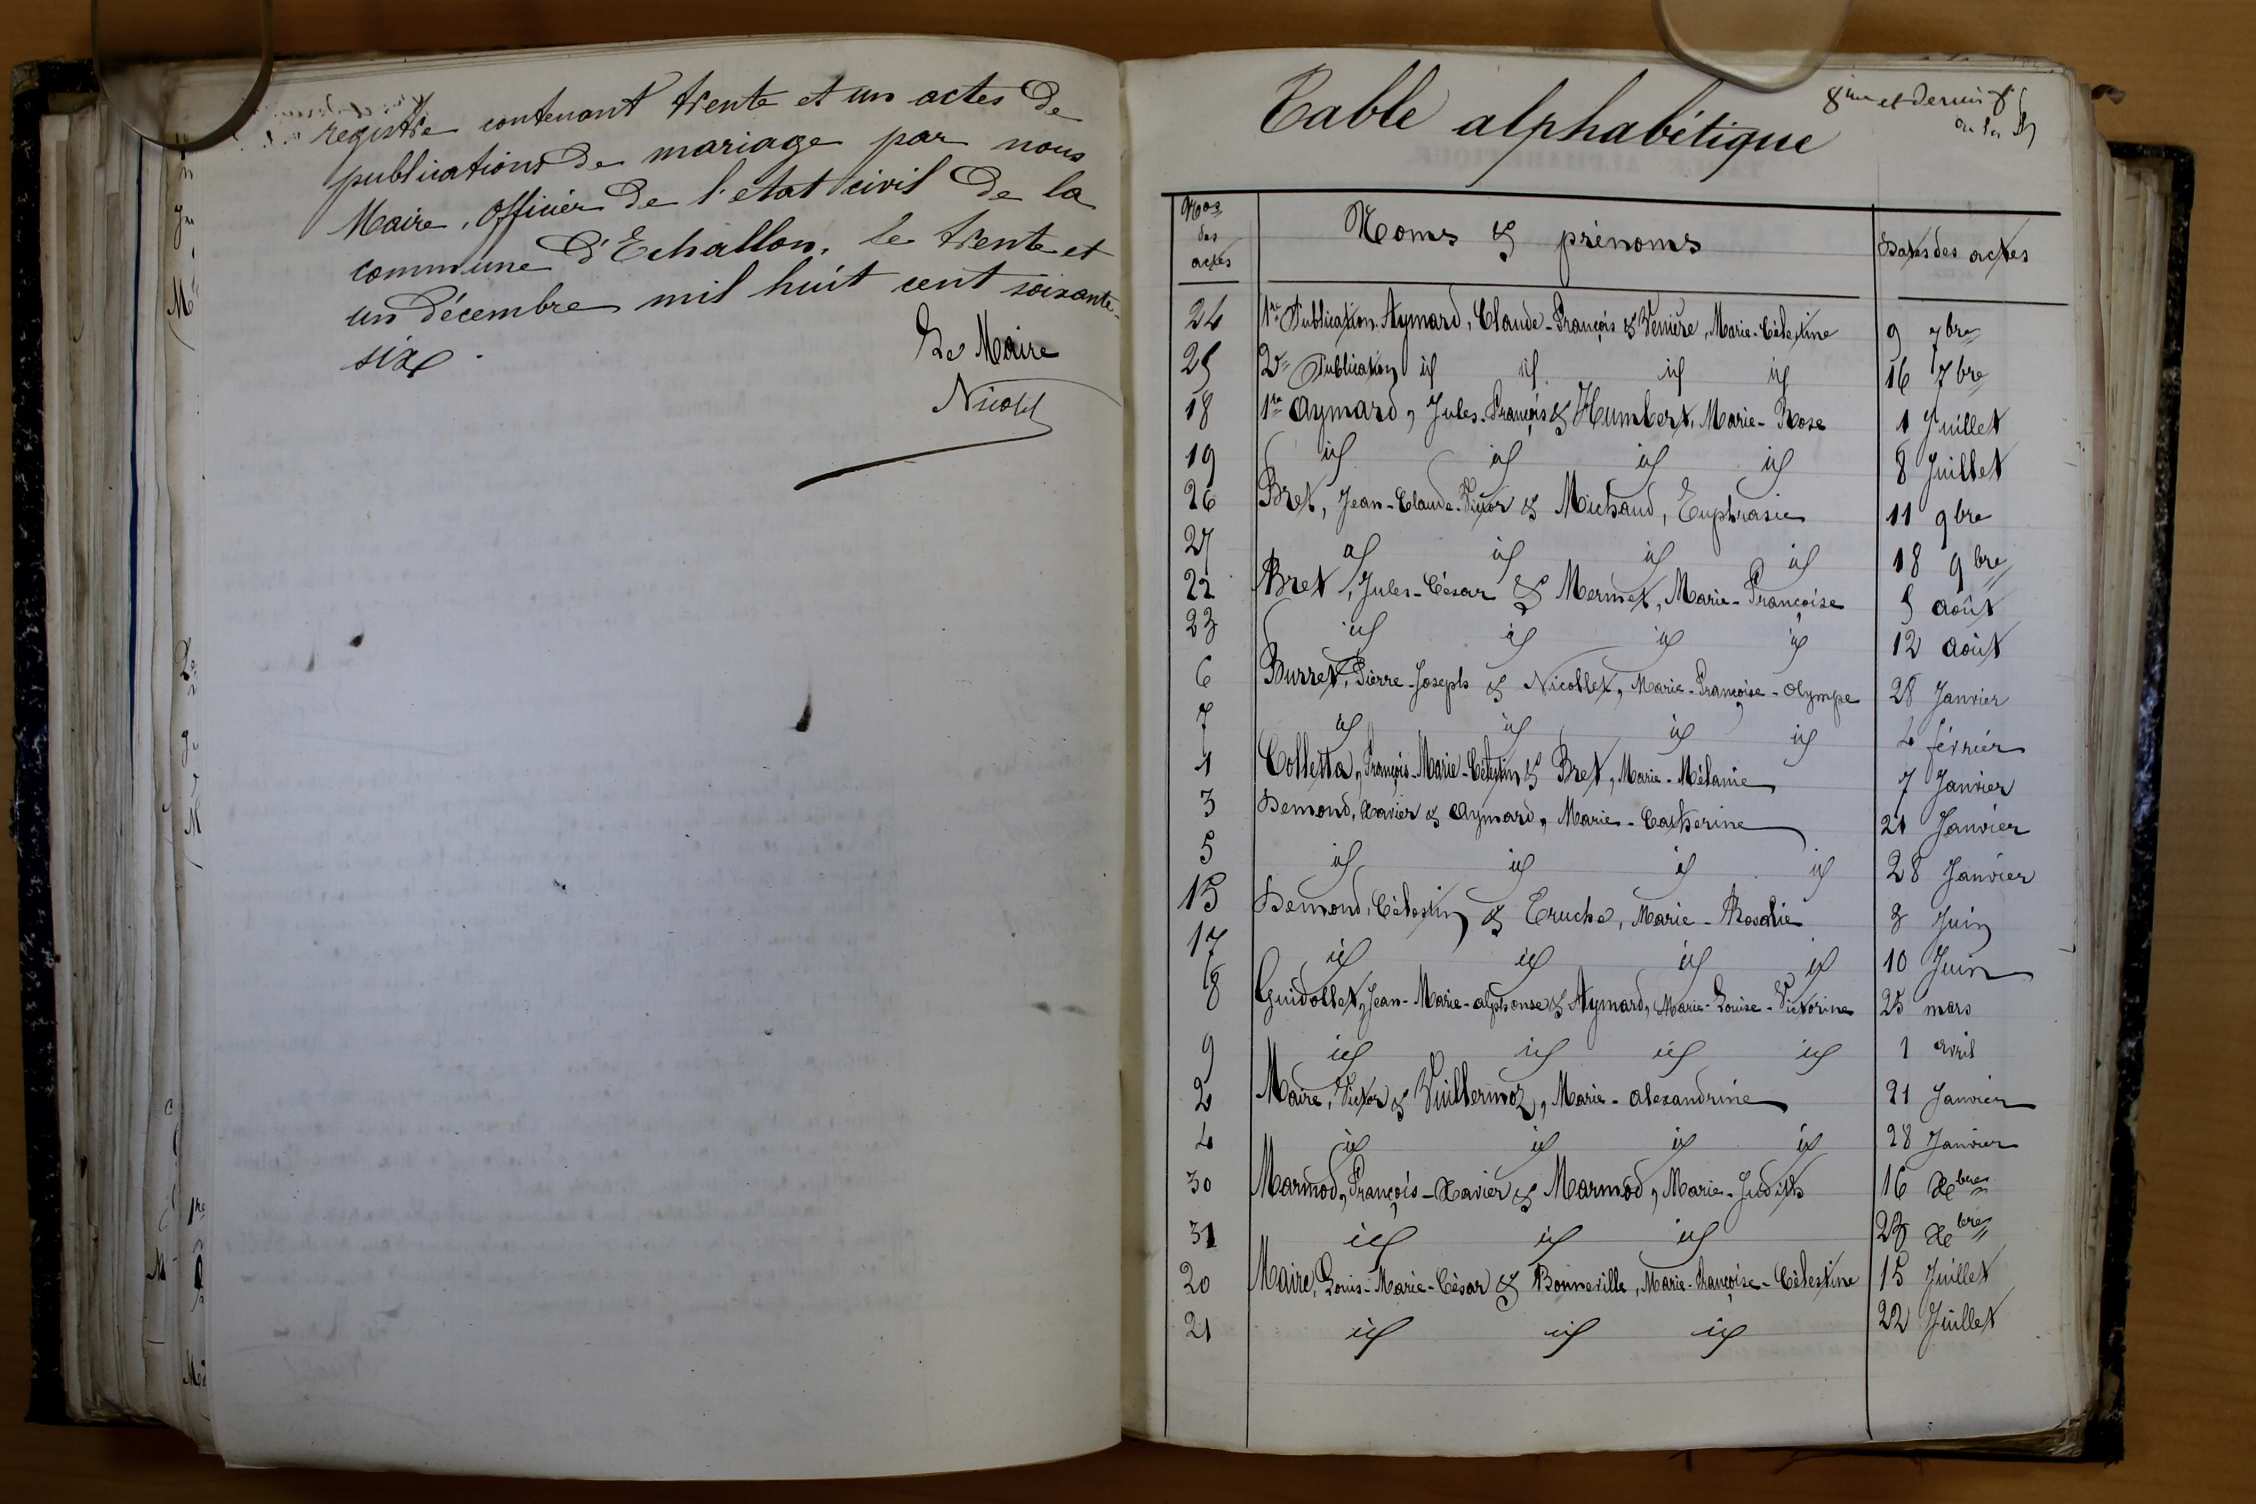 registre contenant trente et un actes de
publications de mariage par nous
Maire, officier de l'etat civil de la
commune d'Echallon, le trente et
un décembre mil huit cent soixante-
six.
Le Maire
Nicolet
8me et dernier
Table alphabétique
Nos des actes Noms & prénoms Dates des actes
24 1re Publication Aymard, Claude-François & Venière, Marie-Célestine 9 7bre
25 2e Publication id id id id 16 7bre
18 1re Aymard, Jules-François & Humbert, Marie-Rose 1 Juillet
19 id id id id 8 Juillet
26 Bret, Jean-Claude-Victor & Michaud, Euphrasie 11 9bre
27 id id id id 18 9bre
22 Bret, Jules-César & Mermet, Marie-Françoise 5 août
23 id id id id 12 août
6 Burret, Pierre-Joseph & Nicollet, Marie-Françoise-Olympe 28 Janvier
7 id id id id 4 février
1 Colletta, François-Marie-Célestin & Bret, Marie-Mélanie 7 Janvier
3 Demond, Xavier & Aymard, Marie-Catherine 21 Janvier
5 id id id id 28 Janvier
15 Demond, Célestin & Truche, Marie-Rosalie 3 Juin
17 id id id id 10 Juin
8 Guidollet, Jean-Marie-alphonse & Aymard, Marie-Louise-Victorine 25 mars
9 id id id id 1 avril
2 Maire, Victor & Vuillermoz, Marie-alexandrine 21 Janvier
4 id id id id 28 Janvier
30 Marmod, François-Xavier & Marmod, Marie-Judith 16 Xbre
31 id id id 23 Xbre
20 Maire, Louis-Marie-César & Bonneville, Marie-Françoise-Célestine 15 Juillet
21 id id id 22 Juillet